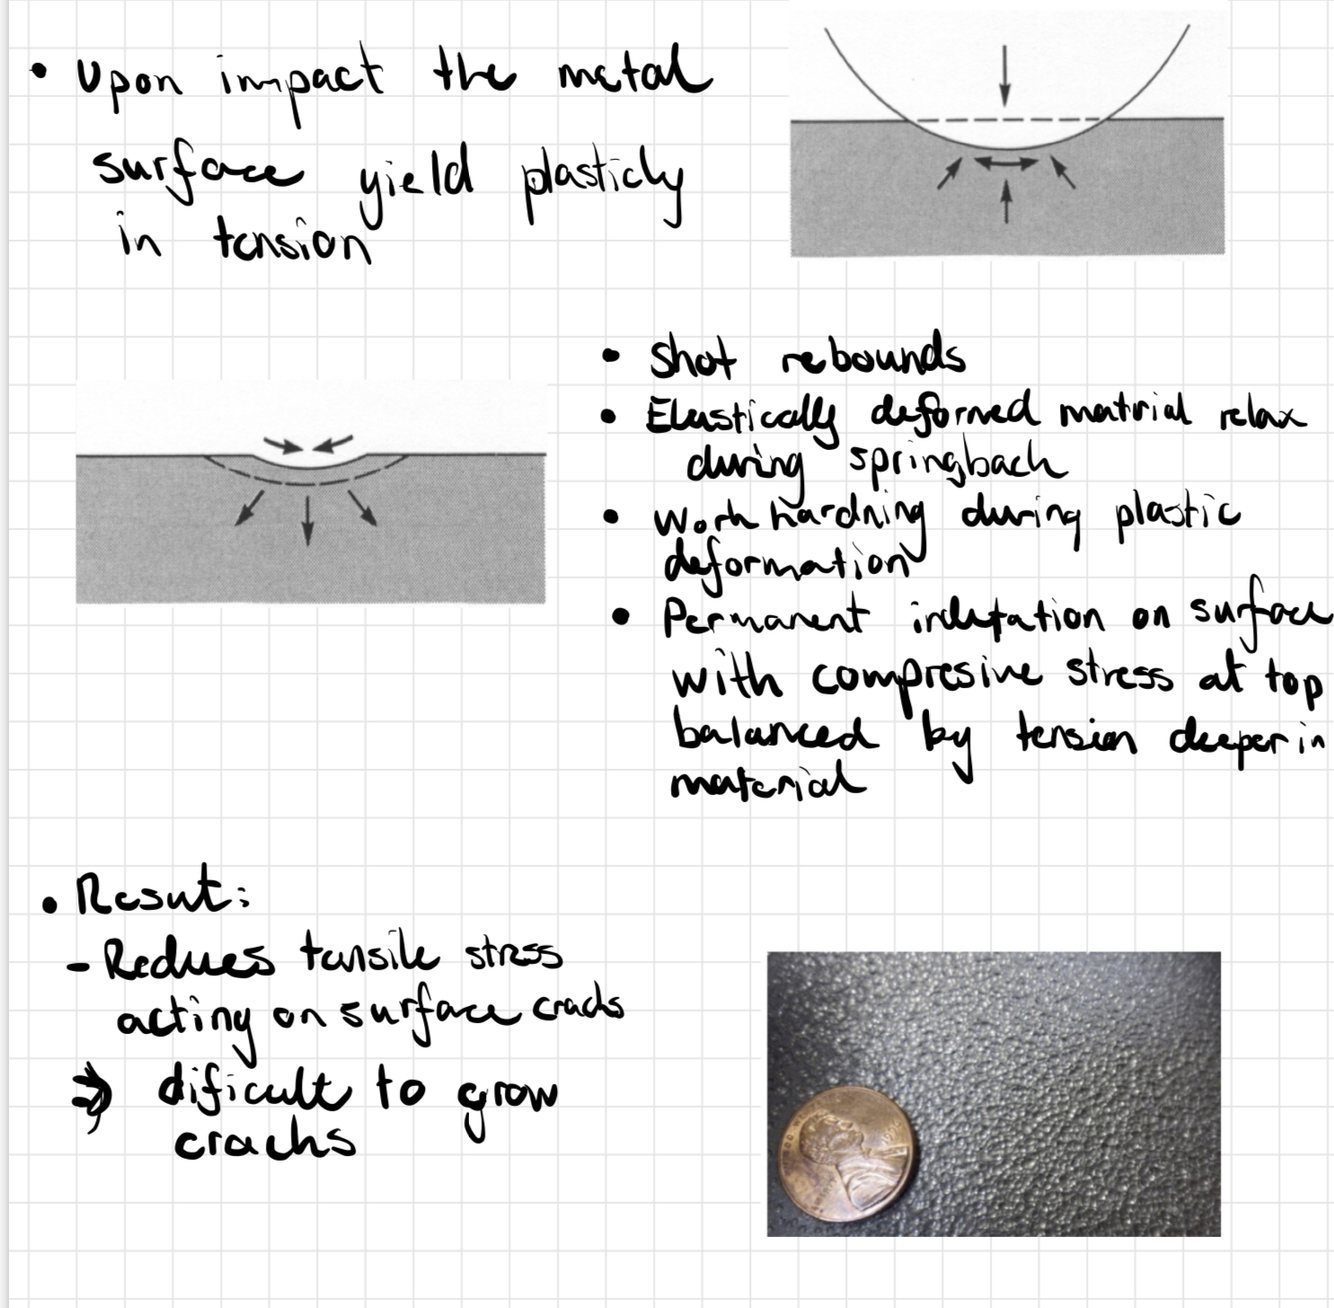 • Upon impact the metal
surface yield plasticly
in tension
• Shot rebounds
• Elastically deformed material relax
during springback
• Work hardning during plastic
deformation
• Permanent indetation on surface
with compresive stress at top
balanced by tension deeper in
material
• Result:
- Reduces tensile stress
acting on surface cracks
⇒ dificult to grow
cracks